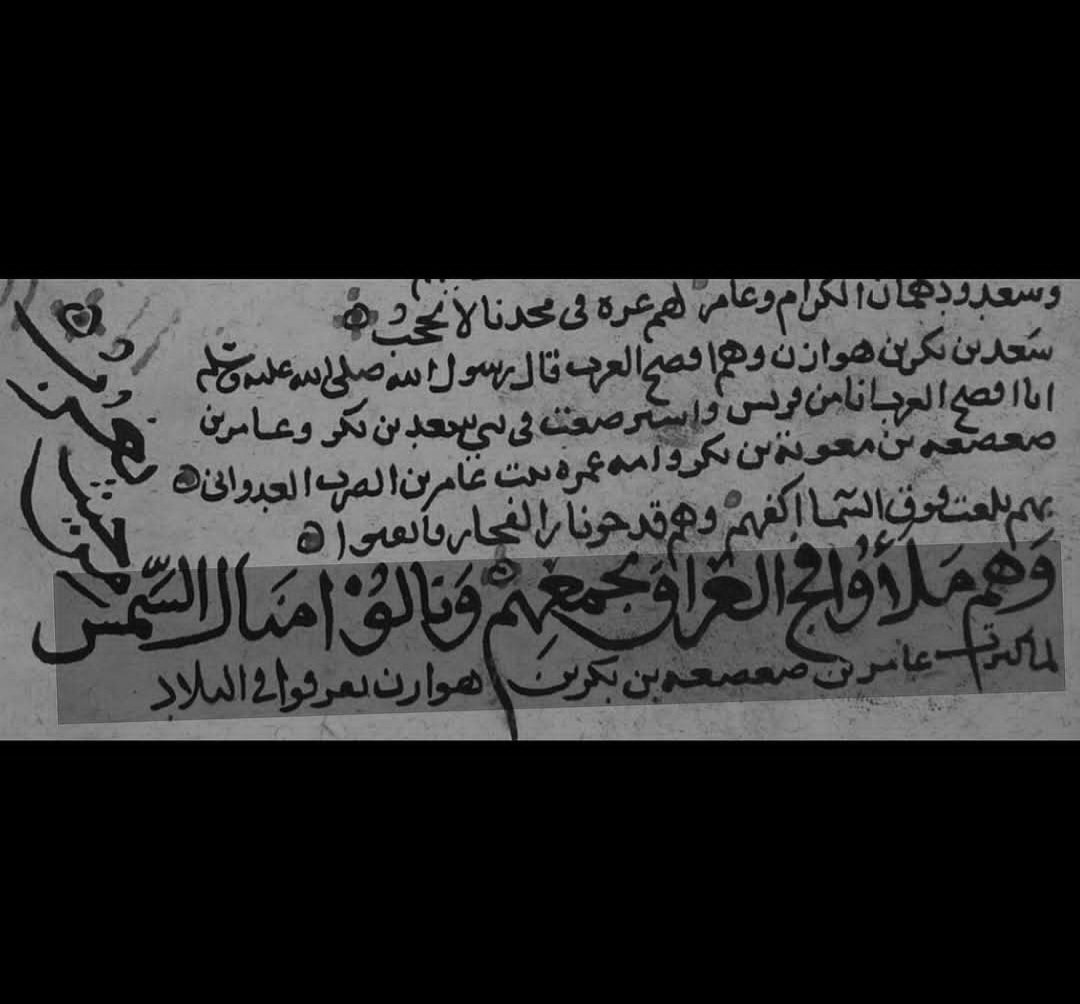 وسعد ودهمان الكرام وعامر لهم عزة في مجدنا لا تحجب
سَعد بن بكر بن هوازن وهم افصح العرب قال رسول الله صلى الله عليه وسلم
انا افصح العرب انا من قريش واسترضعت في بني سعد بن بكر وعامر بن
صعصعه بن معوية بن بكر وامه عمره بنت عامر بن الضرب العدواني
بهم بلغت فوق السَّما اكفهم وهم قدحوا نار الفجار
وَهم مَلأُوا فج العراق بجمعهم وَنالوُا مَنال الشّمس
لما كثرت عامر بن صعصعه بن بكر بن هوازن تفرقوا في البلاد